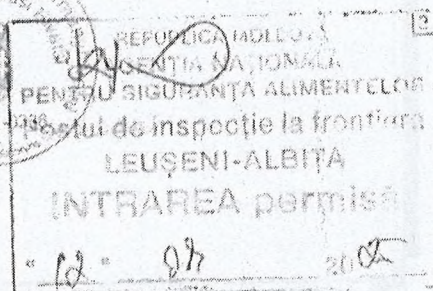 REPUBLICA MOLDOVA
AGENȚIA NAȚIONALĂ
PENTRU SIGURANȚA ALIMENTELOR
Postul de inspecție la frontiera
LEUȘENI-ALBIȚA
INTRAREA permisă
" 12 " 20